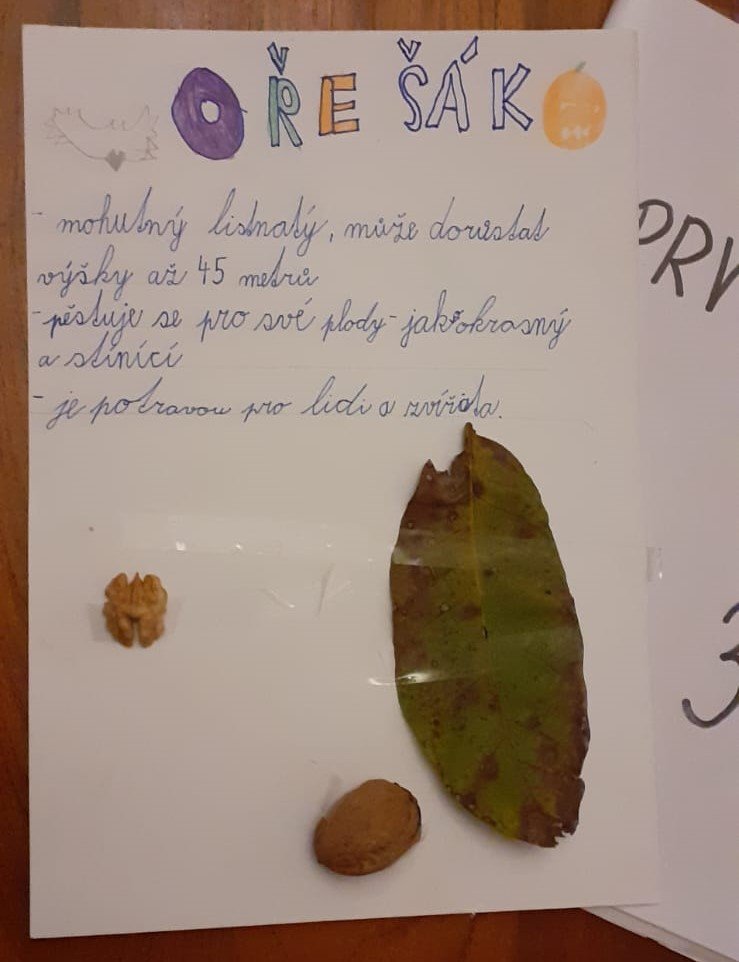 OŘEŠÁK
- mohutný listnatý, může dorůstat
výšky až 45 metrů
- pěstuje se pro své plody - jak okrasný
a stínící
- je potravou pro lidi a zvířata.
PRV
3